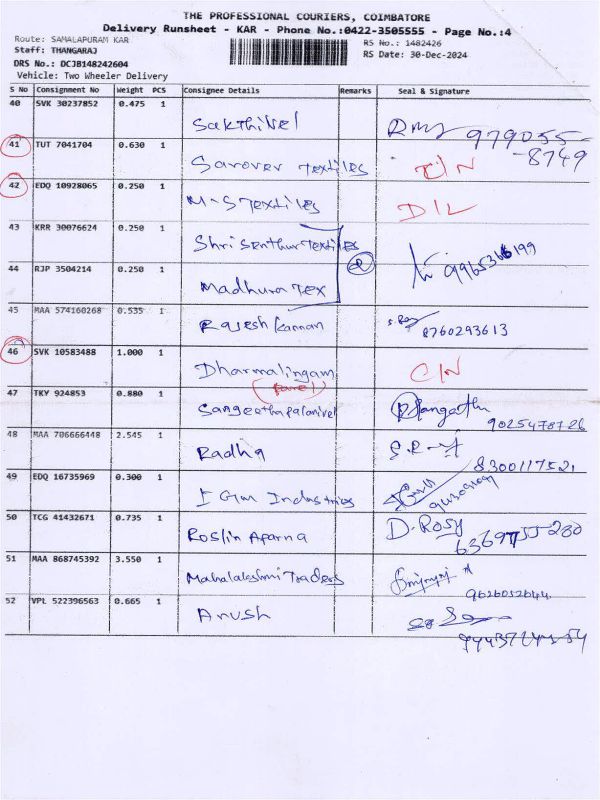 THE PROFESSIONAL COURIERS, COIMBATORE
Delivery Runsheet - KAR - Phone No.:0422-3505555 - Page No.:4
Route: SAMALAPURAM KAR
RS No.: 1482426
Staff: THANGARAJ
RS Date: 30-Dec-2024
DRS No.: DCJB148242604
Vehicle: Two Wheeler Delivery
S No Consignment No Weight PCS Consignee Details Remarks Seal & Signature
40 SVK 30237852 0.475 1
Sakthivel 979055
-8749
41 TUT 7041704 0.630 1
Sarover Textiles
42 EDQ 10928065 0.250 1
M-S Textiles D/L
43 KRR 30076624 0.250 1
Shri Senthur Textiles
44 RJP 3504214 0.250 1
Madhura Tex
45 MAA 574160268 0.535 1
Rajesh Kannan 8760293613
46 SVK 10583488 1.000 1
Dharmalingam C/N
47 TKY 924853 0.880 1
Sangeetha palanivel 9025478726
48 MAA 706666448 2.545 1
Radha 8300117521
49 EDQ 16735969 0.300 1
Industries
50 TCG 41432671 0.735 1
Roslin Aparna D. Rosy
51 MAA 868745392 3.550 1
Mahalakshmi Traders 9626052644
52 VPL 522396563 0.665 1
Anush